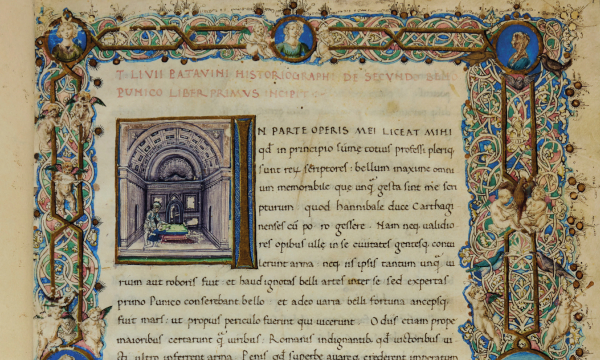 T. LIVII PATAVINI HISTORIOGRAPHI DE SECVNDO BELLO
PVNICO LIBER PRIMVS INCIPIT
IN PARTE OPERIS MEI LICEAT MIHI
qđ in principio sume totius professi pleriq
sunt rerū scriptores: bellum maxime omni
um memorabile que unq̄ gesta sint me scri
pturum quod Hannibale duce Carthagi
nenses cū po. ro. gessere. Nam neq ualidio
res opibus ulle inter se ciuitates gentesq contu
lerunt arma: neq iis ipsis tantum unq̄ ui
rium aut roboris fuit et haud ignotas belli artes inter se sed expertas
primo Punico conserebant bello et adeo uaria belli fortuna ancepsq
fuit mars: ut propius periculo fuerint qui uicerunt. Odiis etiam prope
maioribus certarunt q̄ uiribus: Romanis indignantib qđ uictoribus ui
cti ultro inferrent arma. Penis qđ superbe auareq crederent imperatum